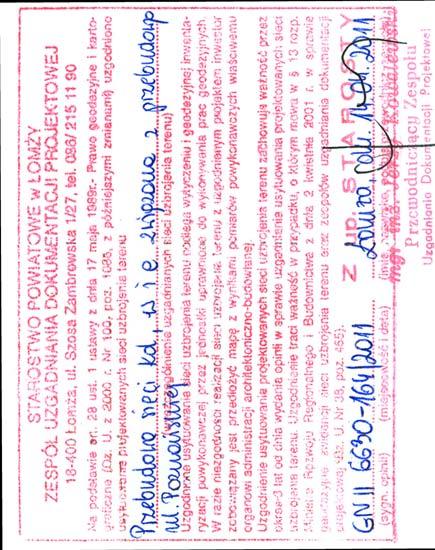 STAROSTWO POWIATOWE W ŁOMŻY
ZESPÓŁ UZGADNIANIA DOKUMENTACJI PROJEKTOWEJ
18-400 Łomża, ul. Szosa Zambrowska 1/27, tel. 086/ 215 11 90
Na podstawie art. 28 ust. 1 ustawy z dnia 17 maja 1989r.- Prawo geodezyjne i karto-
graficzne (Dz. U. z 2000 r. Nr 100, poz. 1086, z późniejszymi zmianami) uzgodniono
usytuowanie projektowanych sieci uzbrojenia terenu
Przebudowa sieci kd, w i e związana z przebudową
ul. Poznańskiej
(wyszczególnienie uzgadnianych sieci uzbrojenia terenu)
Uzgodnione usytuowanie sieci uzbrojenia terenu podlega wytyczeniu i geodezyjnej inwenta-
ryzacji powykonawczej przez jednostki uprawnione do wykonywania prac geodezyjnych.
W razie niezgodności realizacji sieci uzbrojenia terenu z uzgodnionym projektem inwestor
zobowiązany jest przedłożyć mapę z wynikami pomiarów powykonawczych właściwemu
organowi administracji architektoniczno-budowlanej.
Uzgodnienie usytuowania projektowanych sieci uzbrojenia terenu zachowuje ważność przez
okres 3 lat od dnia wydania opinii w sprawie uzgodnienia usytuowania projektowanych sieci
uzbrojenia terenu. Uzgodnienie traci ważność w przypadku, o którym mowa w § 13 rozp.
Ministra Rozwoju Regionalnego i Budownictwa z dnia 2 kwietnia 2001 r. w sprawie
geodezyjnej ewidencji sieci uzbrojenia terenu oraz zespołów uzgadniania dokumentacji
projektowej (Dz. U. Nr 38, poz. 455).
Z up. STAROSTY
GNII 6630-164/2011 Łomża dnia 2011
(sygn. opinii) (miejscowość i data)
mgr inż. Kowalewski
Przewodniczący Zespołu
Uzgadniania Dokumentacji Projektowej